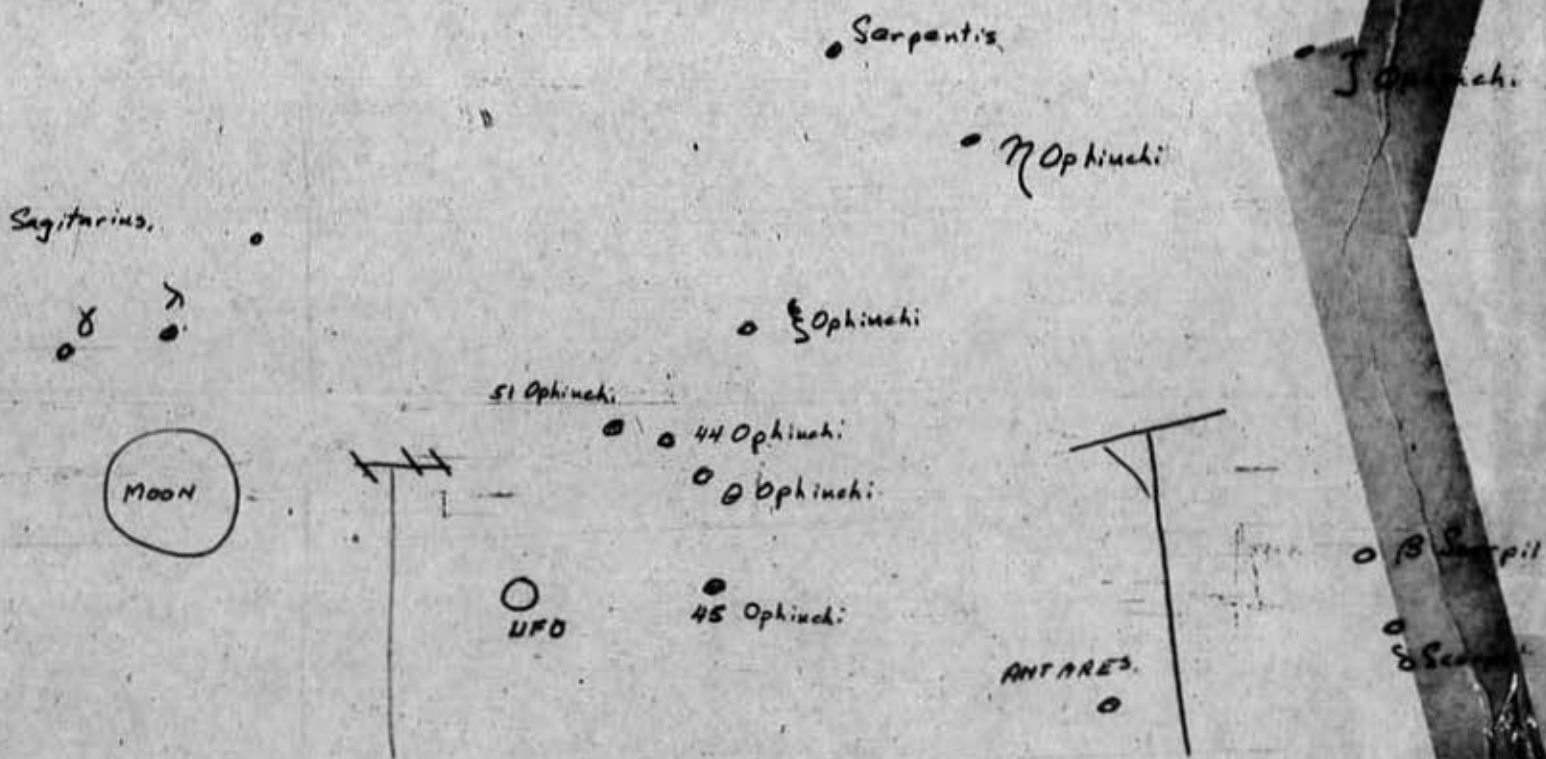 Serpentis
ζ Ophiuchi
η Ophiuchi
Sagitarius.
γ
λ
ξ Ophiuchi
51 Ophiuchi
44 Ophiuchi
θ Ophiuchi
MOON
β Scorpii
UFO
45 Ophiuchi
δ Scorpii
ANTARES.